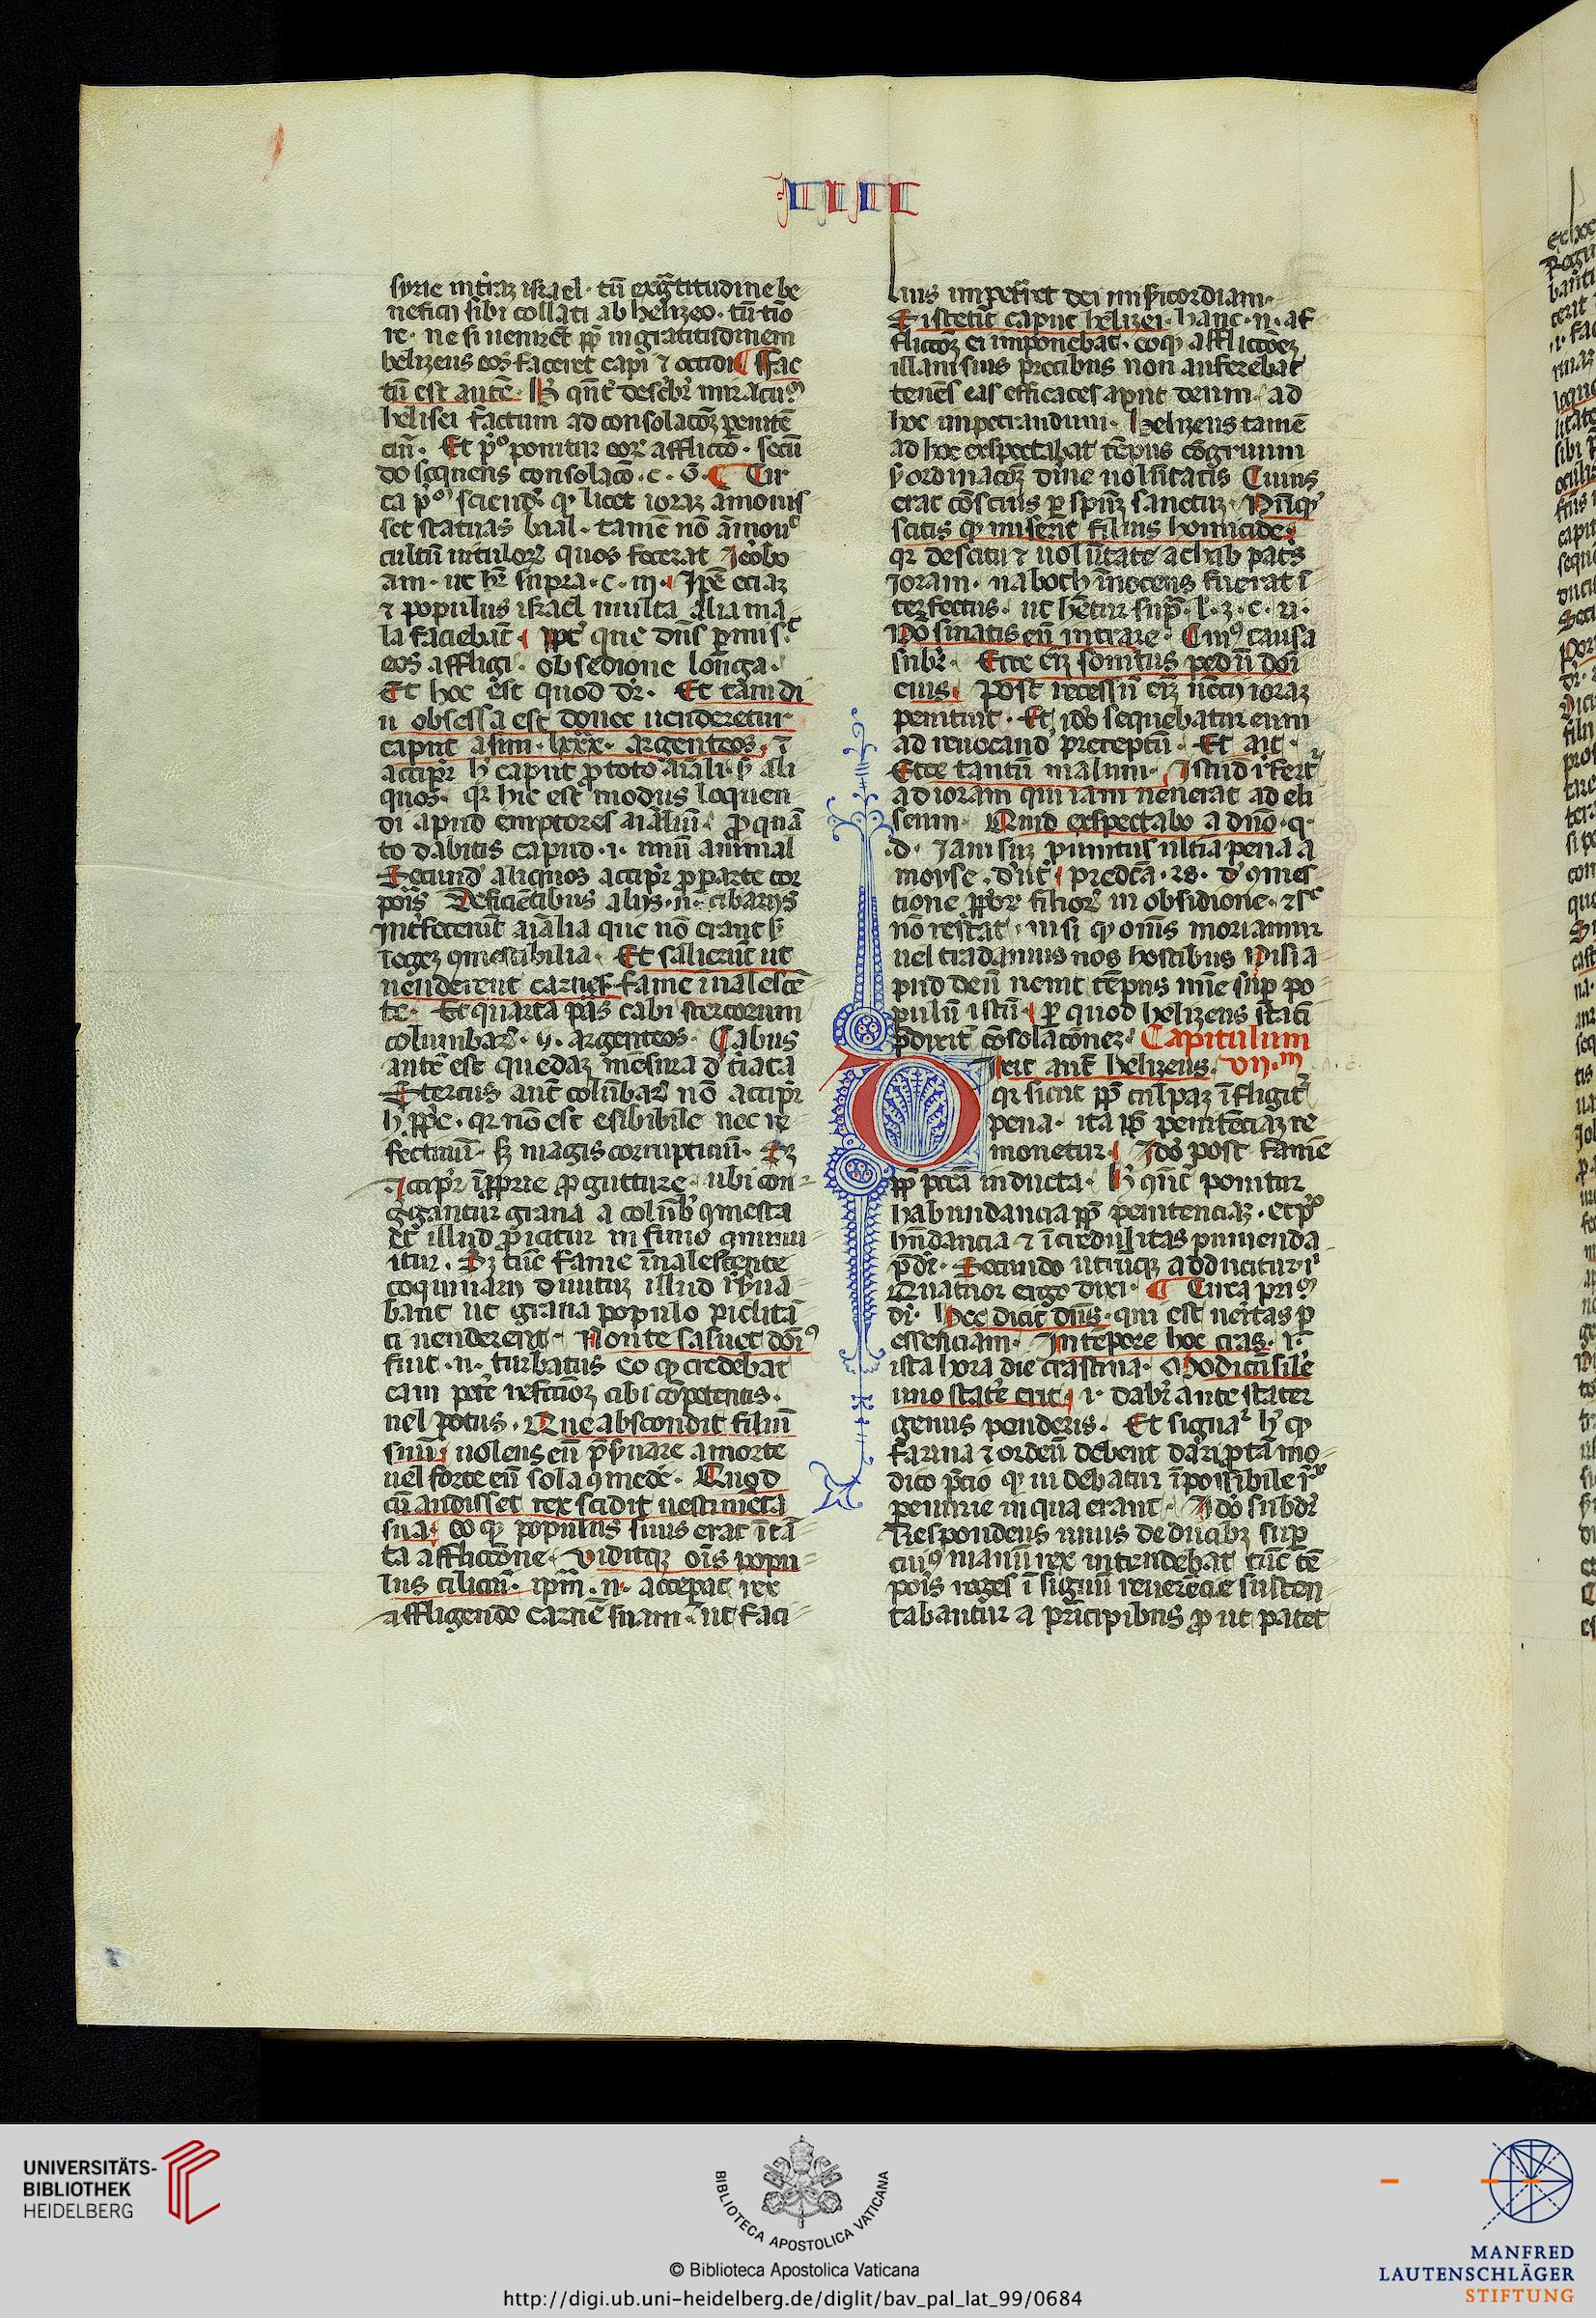 IIII
syrie intraz israel · tū exgͣtitudine be
neficij sibi collati ab helizeo · tū tīo
re · ne si uenirēt pp̄ ingratitudinem
helizeus eos faceret capi ⁊ occidi ¶ Fac
tū est autē · H̓ qn̄t̓ describr̓ miraculū
helisei factum ad consolacōz penitē
ciū · Et p̓ͦ ponitur eorꝝ afflictō · secū
do sequens consolacō · c · 6 · ¶ Cir
ca p̓ͫ sciend̓ ꝙ licet ioraz amouis
set statuas baal · tamē nō āmouͭ
cultū uitulorꝝ quos fecerat Jeobo
am · ut hr̄ supra · c · iij · Ip̄e eciaz
⁊ populus israel multa alia ma
la faciebāt · ppt̓ que dn̄s permisͭ
eos affligi · obsedione longa ·
Et hoc est quod dr̄ · Et tam di
u obsessa est donec uenderetur
caput asini · lxxx · argenteos · ⁊
accipr̄ h̓ caput ꝓ toto aīali · s̓ ali
quos · qr̄ hic est modus loquen
di apud emptores aīaliū · ꝓ quā
to dabitis capud · i · unū animal
Secund̓ aliquos accipr̄ ꝓ parte cor
poris Deficiētibus alijs · n · cibarijs
Int̓fecerūt aīalia que nō erant s̓
legez ꝯmestibilia · Et salierūt ut
uenderent carnes · fame īualescē
te · Et quarta pars cabi stercorum
columbarꝝ · v · argenteos · Cabus
autē est quedaz mēsura
Stercus aut̄ colūbarꝝ nō accipr̄
h̓ ꝓprie · qr̄ nō est esibibile nec re
fectiuū · sꝫ magis corruptiuū · Sꝫ
Accipr̄ īꝓprie ꝓ gutture · ubi con
gregantur grana a colūb̓ ꝯmesta
et illud proicitur in fimo
itur · Sꝫ tūc fame īualescente
coquinarij diuitum illud
bant ut grana populo
ti uenderent · Non te saluet dn̄s
fuit · n · turbatus eo ꝙ credebat
eam pet̓e refectiōꝫ cibi cōpetentis ·
uel potus · Que abscondit filiū
suū · nolens eū p̓s̓uare a morte
uel forte eū sola ꝯmedē · Quod
cū audisset rex scidit uestimēta
sua · eo ꝙ populus suus erat ī tā
ta afflictōne · Viditqꝫ oīs popu
lus ciliciū · ip̄m · n · acceperat rex
affligendo carnē suam · ut faci
lius impetr̄et dei mis̓icordiam ·
Si steterit caput helizei · hanc · n · af
flictōꝫ ei imponebat · eoꝙ afflictōeꝫ
illam suis precibus non auferebat
tenēs eas efficaces aput deum · ad
hoc impetrandum · Helizeus tamē
ad hoc exspectabat tēpus cōgruum
s̓ ordinacōꝫ diuīe uolūtatis Cuius
erat cōscius per spm̄ sanctuꝫ · Nūqͥd
scitis ꝙ miserit filius homicide ·
qr̄ de scitu ⁊ uolūtate achab patͥs
Joram · naboth īnocens fuerat ī
terfectus · ut hētur sup̄ · l · 3 · c · 21 ·
Nō sinatis eū intrare · Cuiꝰ causa
subr̄ · Ecce eī sonitus pedū dn̄i
eius · post recessū eī nūcij ioraz
penituit · Et id̓o sequebatur eum
ad reuocand̓ preceptū · Et ait ·
Ecce tantū malum · Istud refert̓
ad ioram qui iam uenerat ad eli
seum · Quid exspectabo a dn̄o · q ·
d · Jam suꝫ punitus ultīa pena a
moyse · · 28 · d̓ ꝯmes
tione ꝓprorꝝ filiorꝝ in obsidione · ⁊ sͥc
nō restat · nisi ꝙ om̄s moriamur
uel tradamus nos hostibus Nisi a
pud deū uenit tēpus mīe sup̄ po
pulū istū · per quod helizeus statī
p̄dixit cōsolacōneꝫ · Capitulum
Dixit aut̄ helizeus · VIIͫ
qr̄ sicut pp̄ culpaꝫ īfligitͬ
pena · ita pp̄ penitēciaꝫ re
monetur · Ido̓ post famē
pp̄ pctā inducta · H̓ qn̄t̓ ponitur
habundancia pp̄ penitenciaꝫ · et pͦ
hn̄dancia ⁊ īcredulitas punienda
p̄dr̄ · Secundo utrūqꝫ adducitur ·
Quatuor ergo dixi · ¶ Circa priͫ
dr̄ · Hec dicit dn̄s · qui est ueritas per
essenciam · In tēpore hoc cras · i ·
ista hora die crastina · Modiū sile
uno state̓ erit · i · dabr̄ ante stater
genus ponderis · Et signatͬ h̓ ꝙ
farina ⁊ ordeū debent dari ꝓ tā mo
dico p̄cio ꝙ uidebatur īpossibile
penurie in qua erant · Ido̓ subdr̄
Respondens unus de ducibꝫ sup̄
cuiꝰ manū rex intendebat tūc tē
pois reges ī signū reuerēcie susten
tabantur a pͥncipibus ꝓ ut patet
UNIVERSITÄTS-
BIBLIOTHEK
HEIDELBERG
BIBLIOTECA APOSTOLICA VATICANA
© Biblioteca Apostolica Vaticana
http://digi.ub.uni-heidelberg.de/diglit/bav_pal_lat_99/0684
MANFRED
LAUTENSCHLÄGER
STIFTUNG